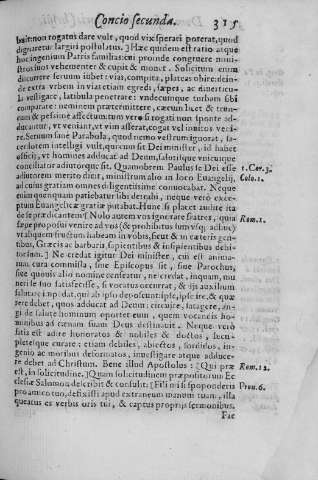 Concio secunda. 315
huic non rogatus dare vult, quod vix sperari poterat, quod
dignaretur largiri postulatus. ] Hæc quidem est ratio atque
hoc ingenium Patris familias: ei proinde congruere mini-
stros suos vehementer & cupit & monet. Solicitum enim
discurrere seruum iubet: vias, compita, plateas obire: dein-
de extra vrbem in viciatim egredi, sæpes, ac
vestigare, latibula penetrare: vndecumque turbam sibi
comparate: neminem prætermittere, cæcum licet &
& pessime affectum: tum vero si rogati non sponte ad-
ducantur, vt veniant, vt vim afferat, cogat vel inuitos veni-
re. Seruum sane Parabola, quod nemo vestrum ignorat, fa-
cer totem intelligi vult, quicunque sit Dei minister, id habet
officij, vt homines adducat ad Deum, salutisque vnicuique
conciliator adiutorque sit. Quamobrem Paulus se Dei esse 1. Cor. 3.
adiutorem merito dicit, ministrum alio in loco Euangelij, Colo. 1.
ad cuius gratiam omnes diligentissime conuocabat. Neque
enim quenquam patiebatur sibi detrahi, neque vero exce-
ptum Euangelicæ gratiæ putabat. Hunc si placet audite ita
de se prædicantem [ Nolo autem vos ignorare fratres, quia Rom. 1.
sæpe proposui venire ad vos (& prohibitus sum vsque adhuc)
vt aliquem fructum habeam in vobis, sicut & in cæteris gen-
tibus, Græcis ac barbaris, sapientibus & insipientibus debi-
tor sum. ] Ne credat igitur Dei minister, cui est anima-
rum cura commissa, siue Episcopus sit, siue Parochus,
siue quouis alio nomine censeatur, ne credat, inquam, mu-
neri se suo satisfecisse, si vocatus occurrat, & ijs auxilium
salutare impendat, qui ab ipso deposcunt: ipse, ipse ire, & quæ-
rere debet, quos adducat ad Deum: circuire, satagere, an-
gi de salute hominum oportet eum, quem vocandis ho-
minibus ad cænam suam Deus destinauit. Neque verò
satis est adire honoratos & nobiles & doctos, locu-
pletesque curare: etiam debiles, abiectos, sordidos, in-
genio ac moribus deformatos, inuestigare atque adduce-
re debet ad Christum. Bene illud Apostolus : [ Qui præ Rom. 12.
est, in solicitudine. ] Quam solicitudinem præpositurum Ec
clesiæ Salomon describit & consulit: [ Fili mi si spoponderis Prou. 6.
pro amico tuo, defixisti apud extraneum manum tuam, illa
queatus es verbis oris tui, & captus proprijs sermonibus.
Fac